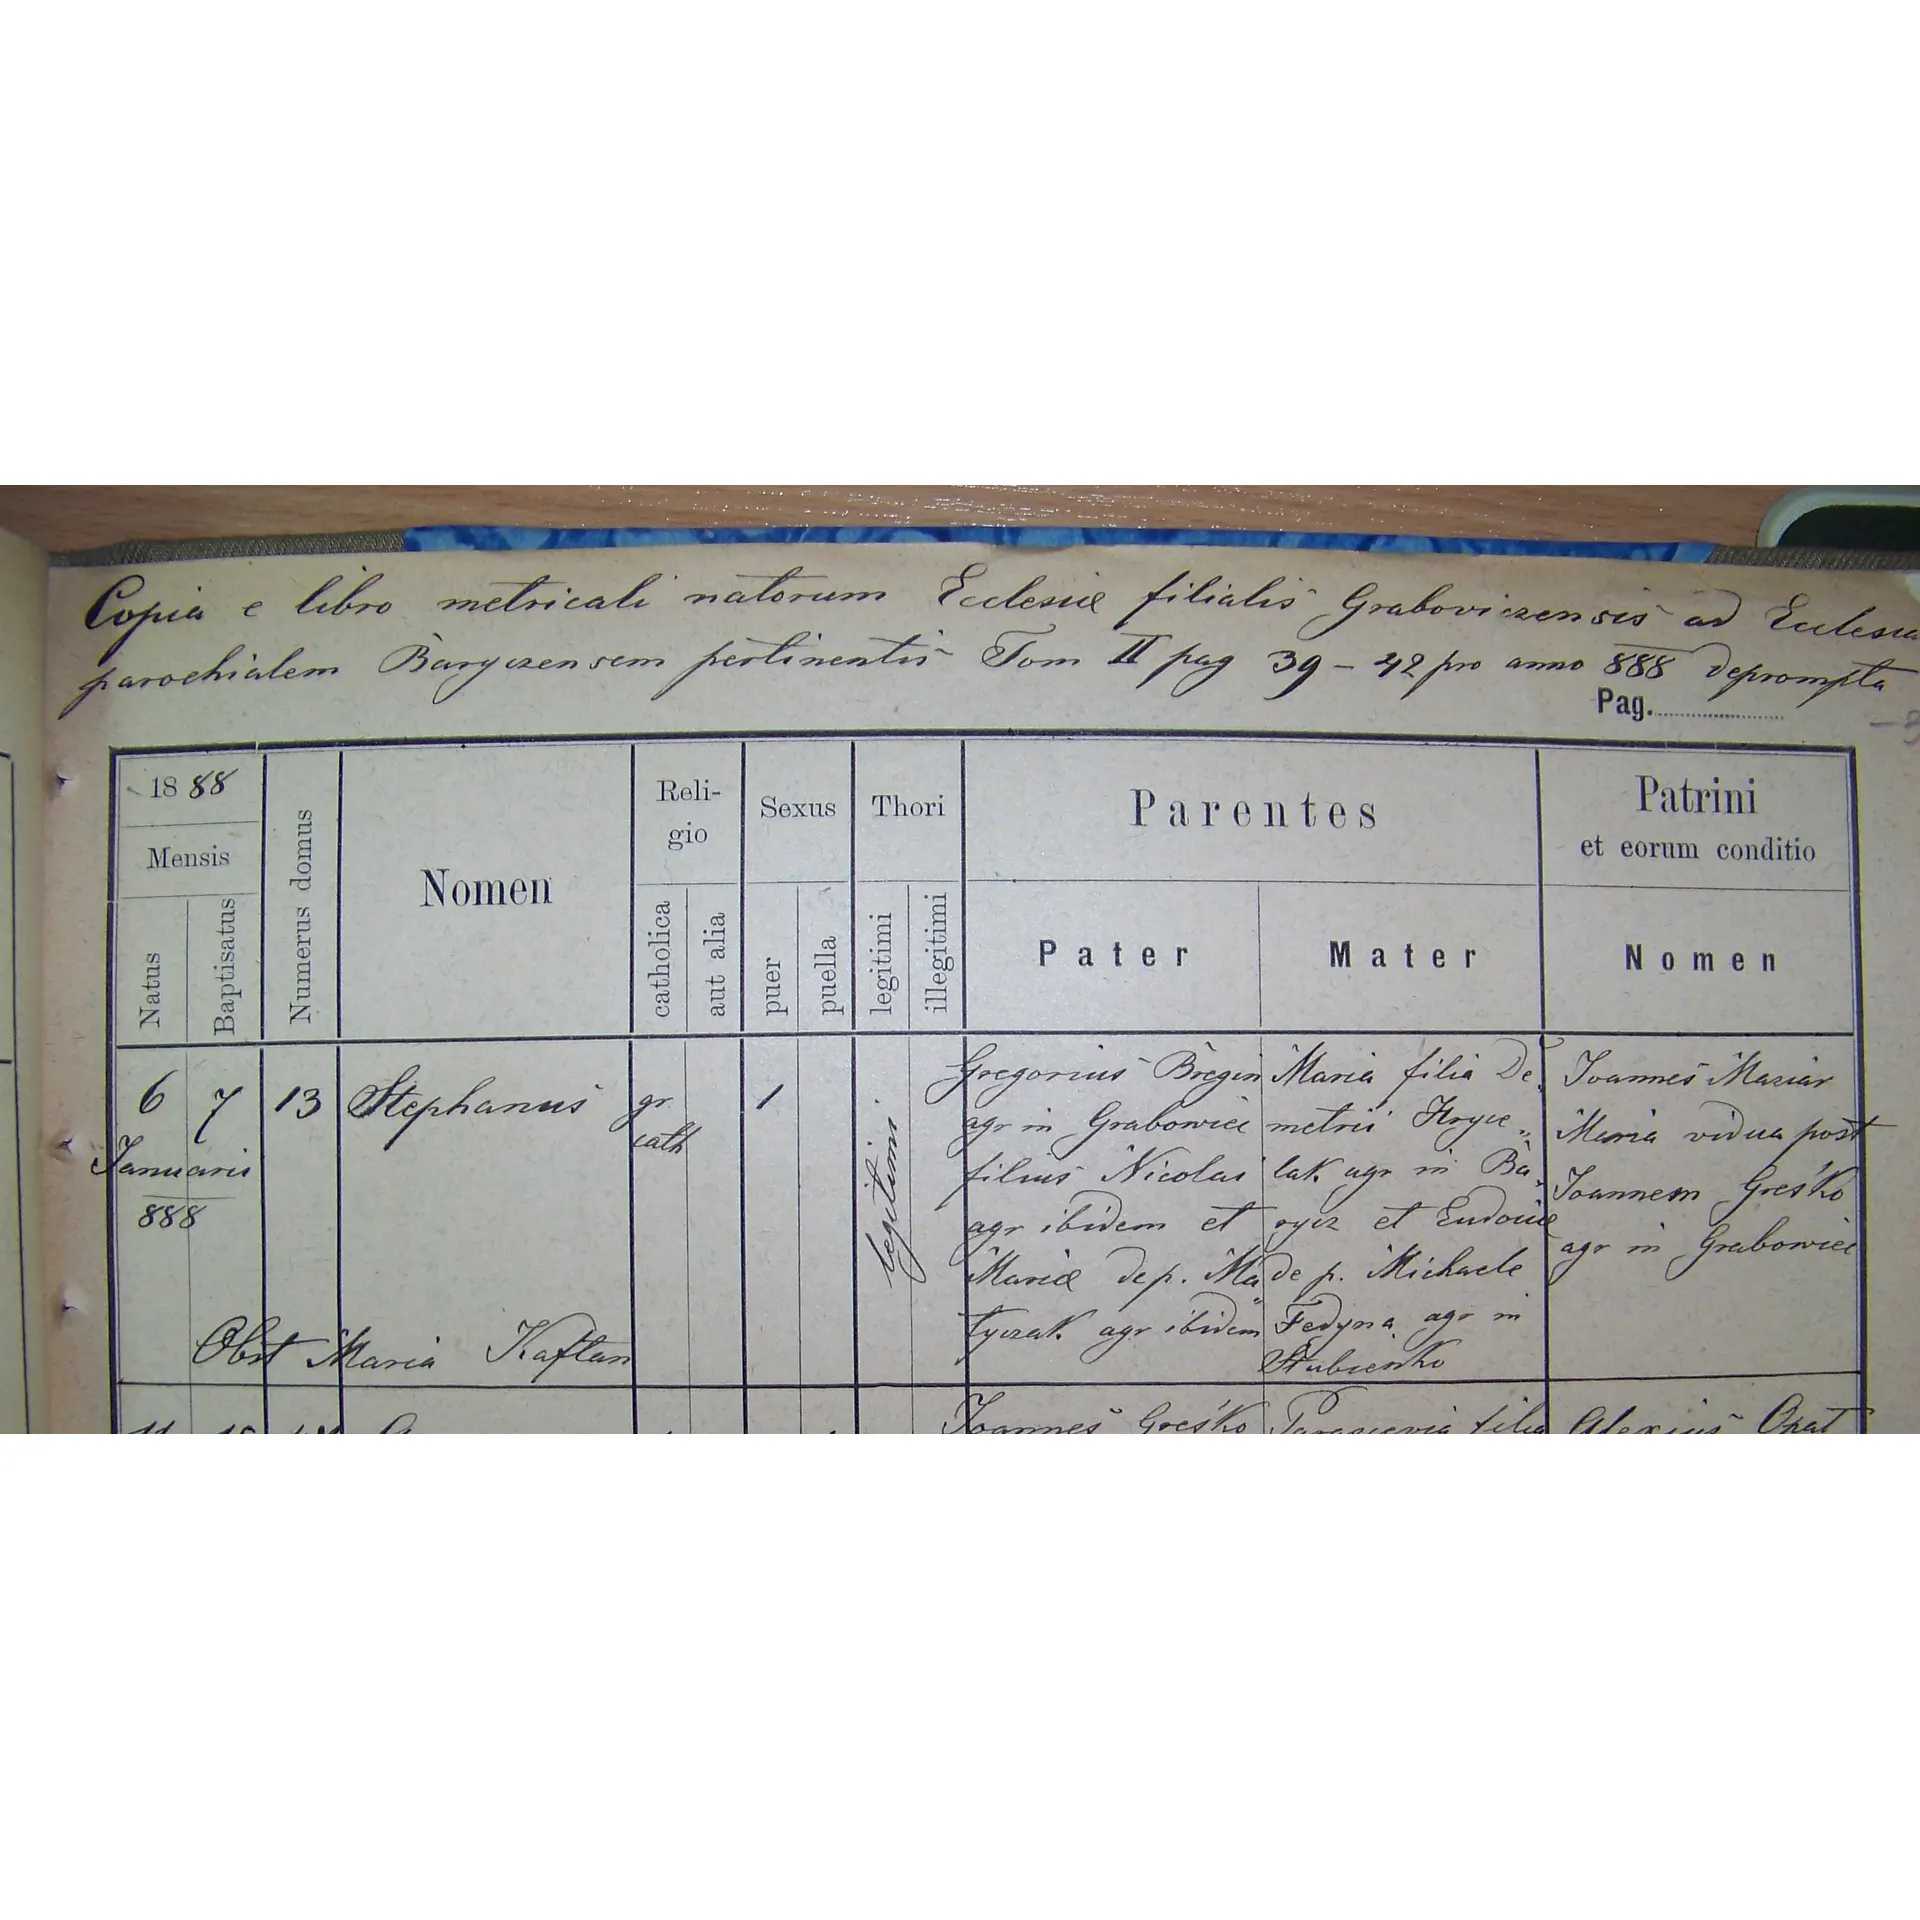 Copia e libro metricali natorum Ecclesiæ filialis Graboviczensis ad Ecclesia
parochialem Baryczensem pertinentis Tom II pag 39-42 pro anno 888 deprompta
Pag.
1888
Mensis
Natus
Baptisatus
Numerus domus
Nomen
Reli-
gio
catholica
aut alia
Sexus
puer
puella
Thori
legitimi
illegitimi
Parentes
Pater
Mater
Patrini
et eorum conditio
Nomen
6
7
Januaris
888
13
Stephanus
gr
cath
1
legitimi
Gregorius Bregin
agr in Grabowiec
filius Nicolai
agr ibidem et
Mariæ de p. Ma
tyczak agr ibidem
Maria filia De
metrii Hryce„
lak agr in Ba„
rycz et Eudociæ
de p. Michaele
Fedyna agr in
Stubienko
Joannes Maziar
Maria vidua post
Joannem Greśko
agr in Grabowiec
Obst Maria Kaftan
Joannes Greśko
Parascevia filia
Alexius Opat